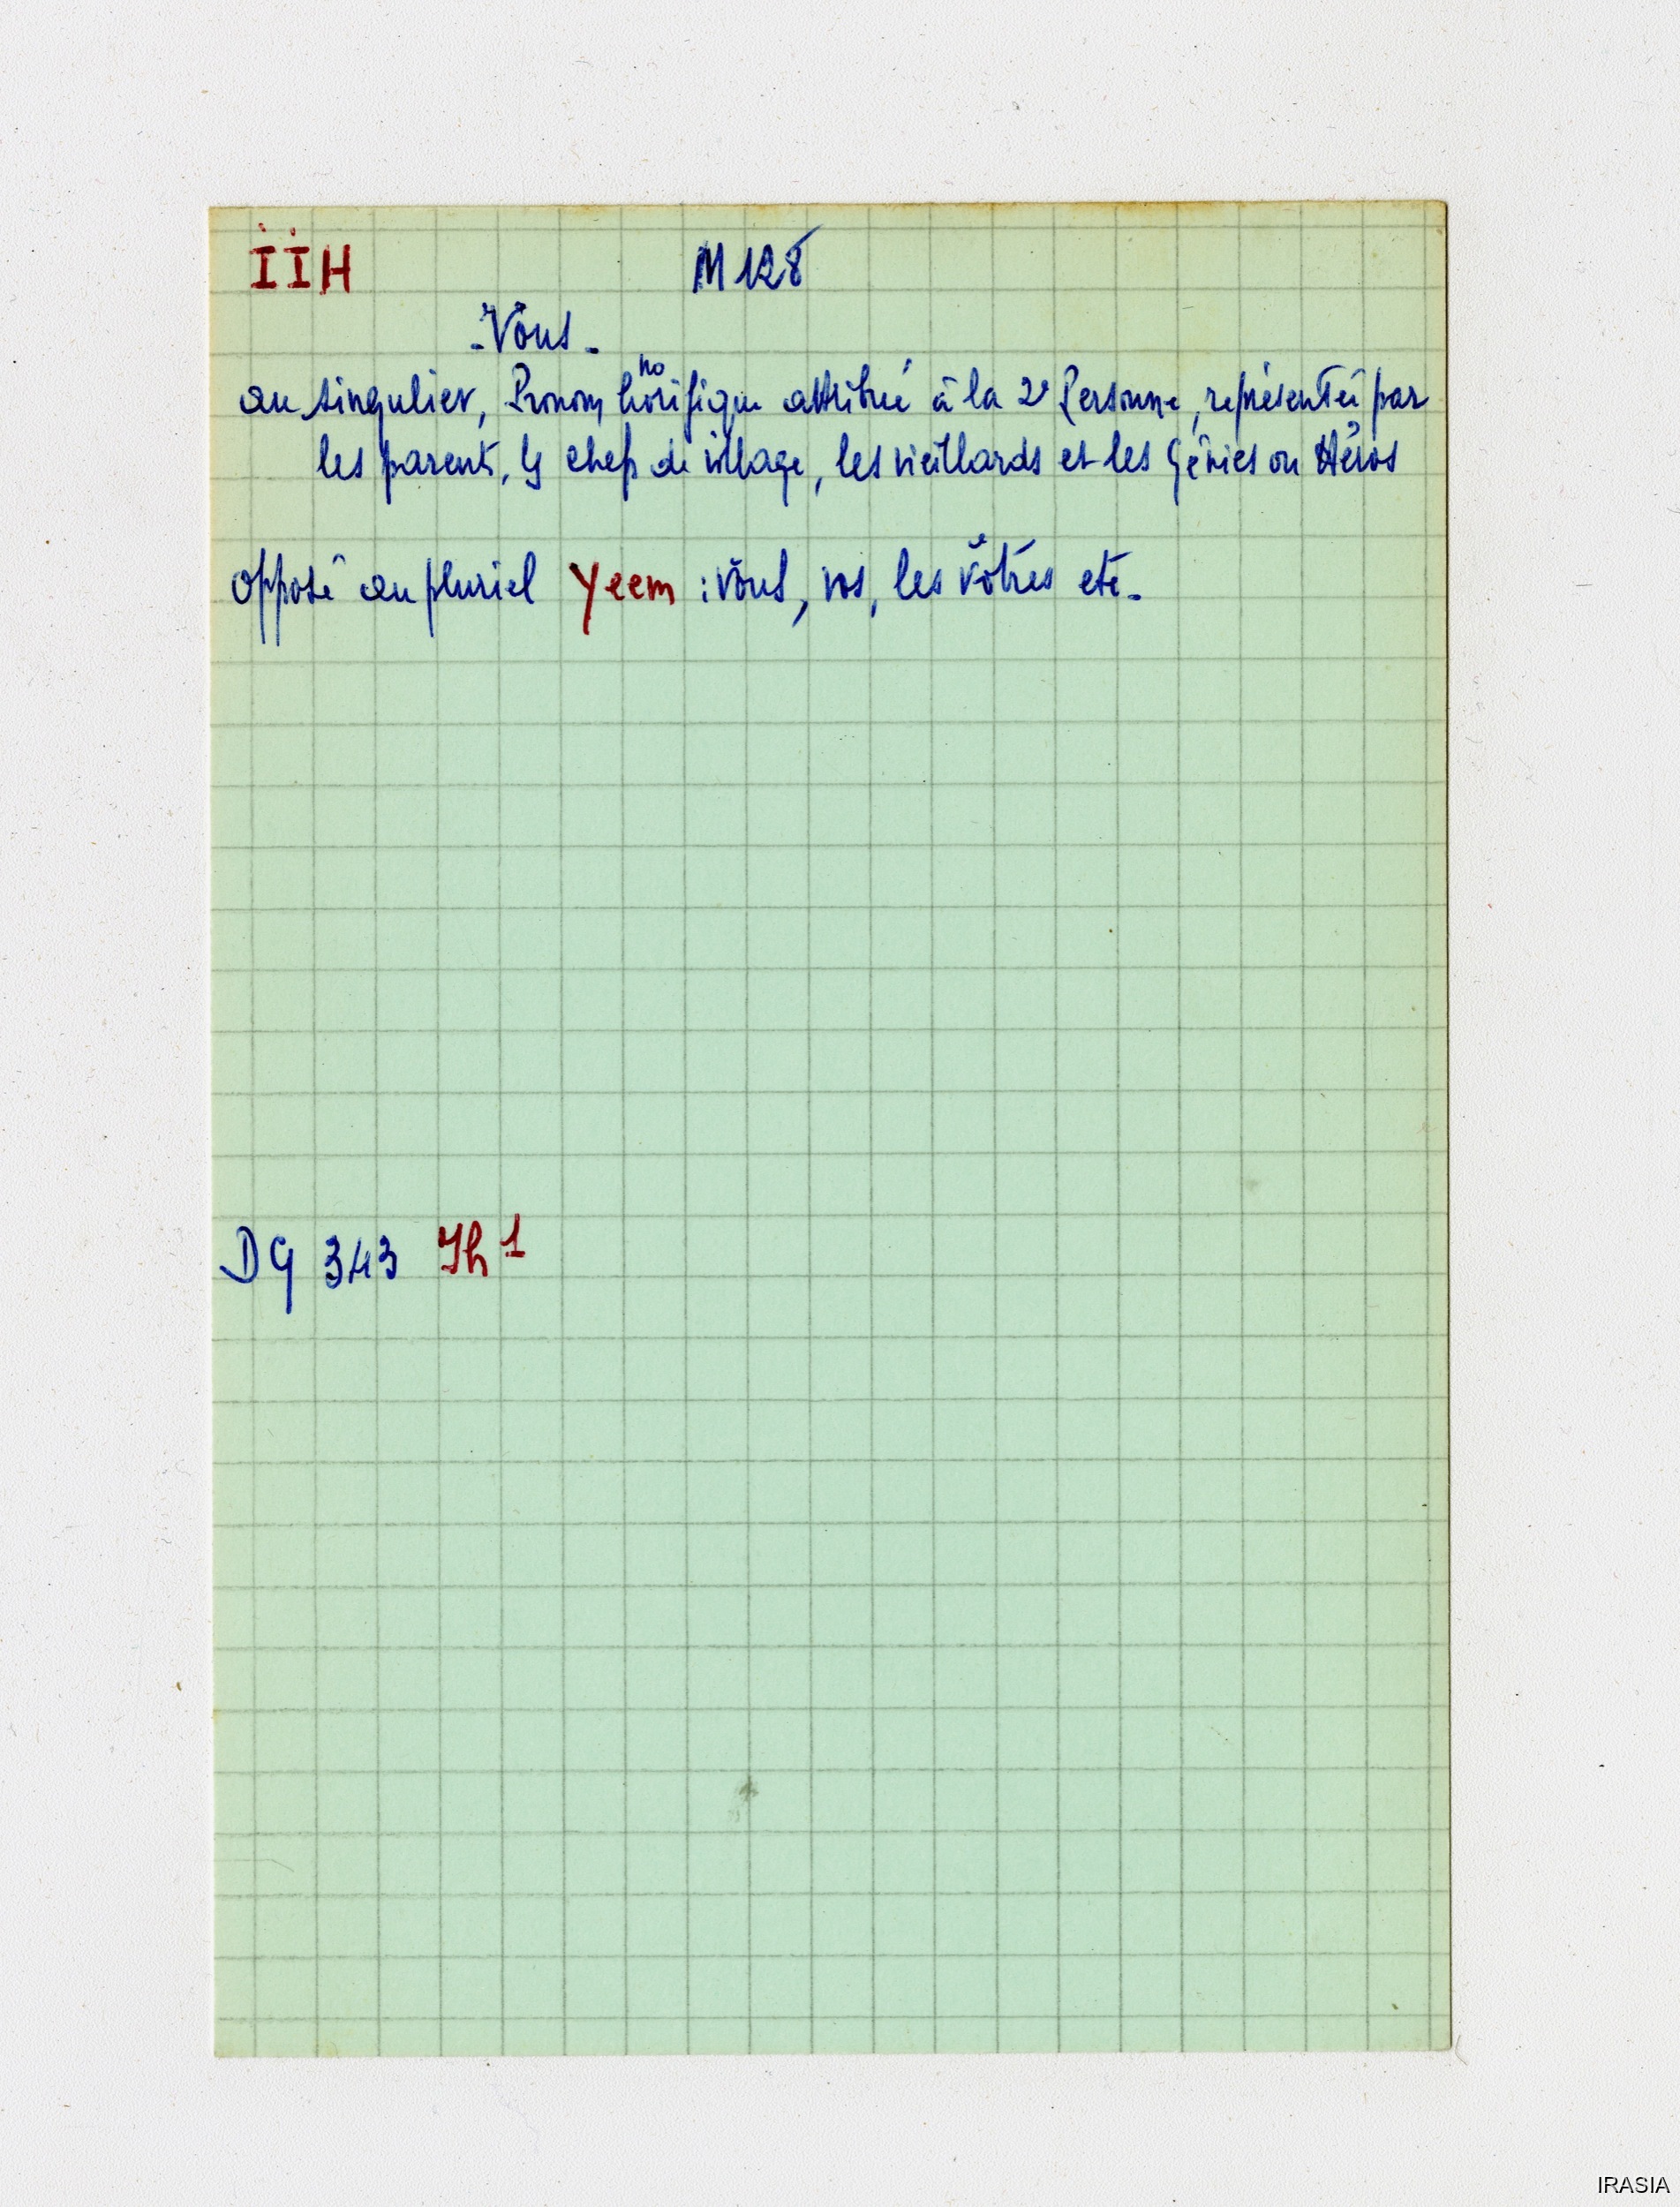 IIH M 128
- Vous -
au singulier, Pronom honorifique attribué à la 2e Personne, représentée par
les parents, ls chefs de village, les vieillards et les Génies ou Héros
Opposé au pluriel Yeem : vous, vos, les vôtres etc.
DG 343 Ih 1
IRASIA